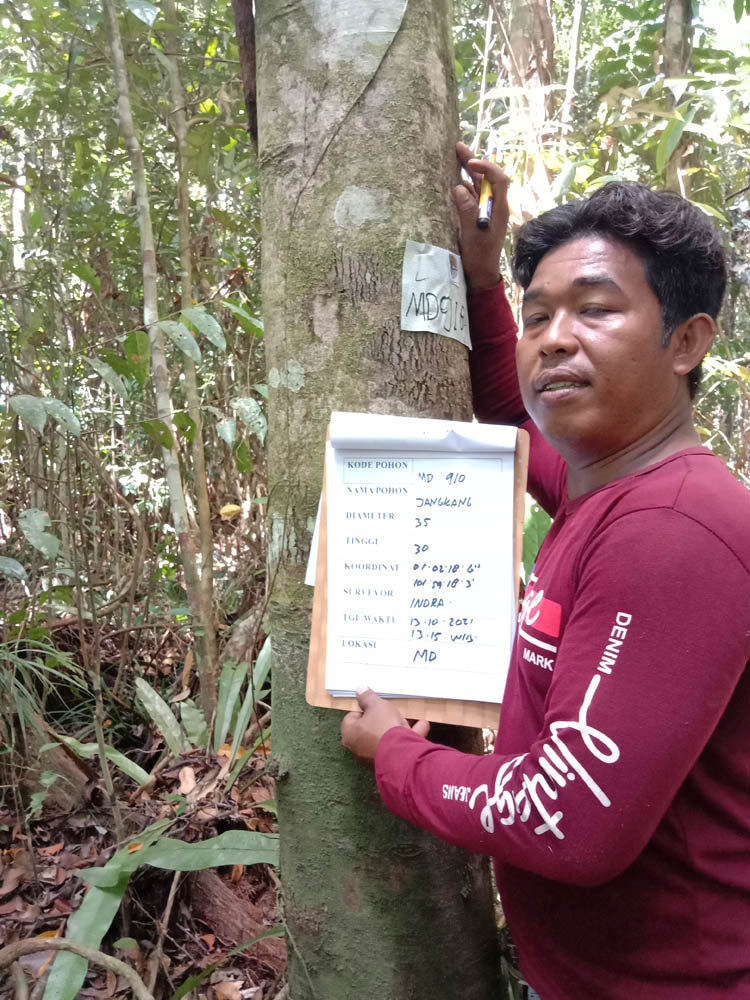 L
MD910
KODE POHON MD 910
NAMA POHON JANGKANG
DIAMETER 35
TINGGI 30
KOORDINAT 01·02·18·6"
101·59·18·3'
SURVEYOR INDRA·
TGL/WAKTU 13·10·2021
13·15 WIB·
LOKASI MD
DENIM
Vintage
JEANS
MARK